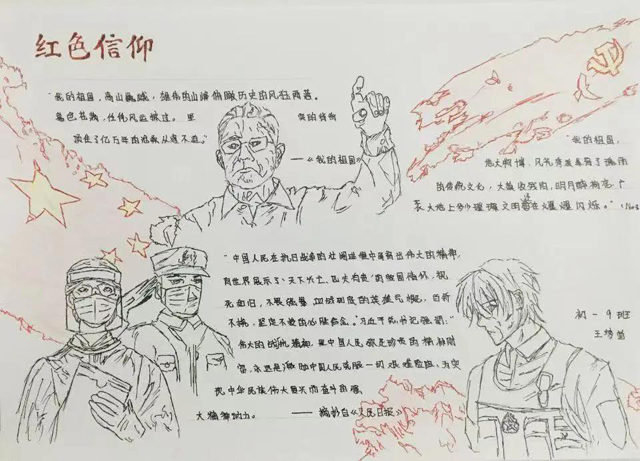 红色信仰
"我的祖国,高山巍峨,雄伟的山峰俯瞰历史的风狂雨落,
暮色苍茫,任凭风云掠过。坚
实的脊背
顶住了亿万年的沧桑从容不迫。"
——《我的祖国》
"我的祖国,
地大物博,
的传统文化,大漠收残阳,明月醉荷花,广
袤大地上多少璀璨文明还在熠熠闪烁。"
"中国人民在抗日战争的壮阔进程中孕育出伟大的抗战精神,
向世界展示了天下兴亡、匹夫有责的爱国情怀,视
死如归、不畏强暴、血战到底的英雄气概,百折
不挠、坚定不移的必胜信念。"习近平总书记强调:"
伟大的抗战精神,是中国人民弥足珍贵的精神财
富,永远是激励中国人民克服一切艰难险阻、为实
现中华民族伟大复兴而奋斗的强
大精神动力。
——摘抄自《人民日报》
初一9班
王